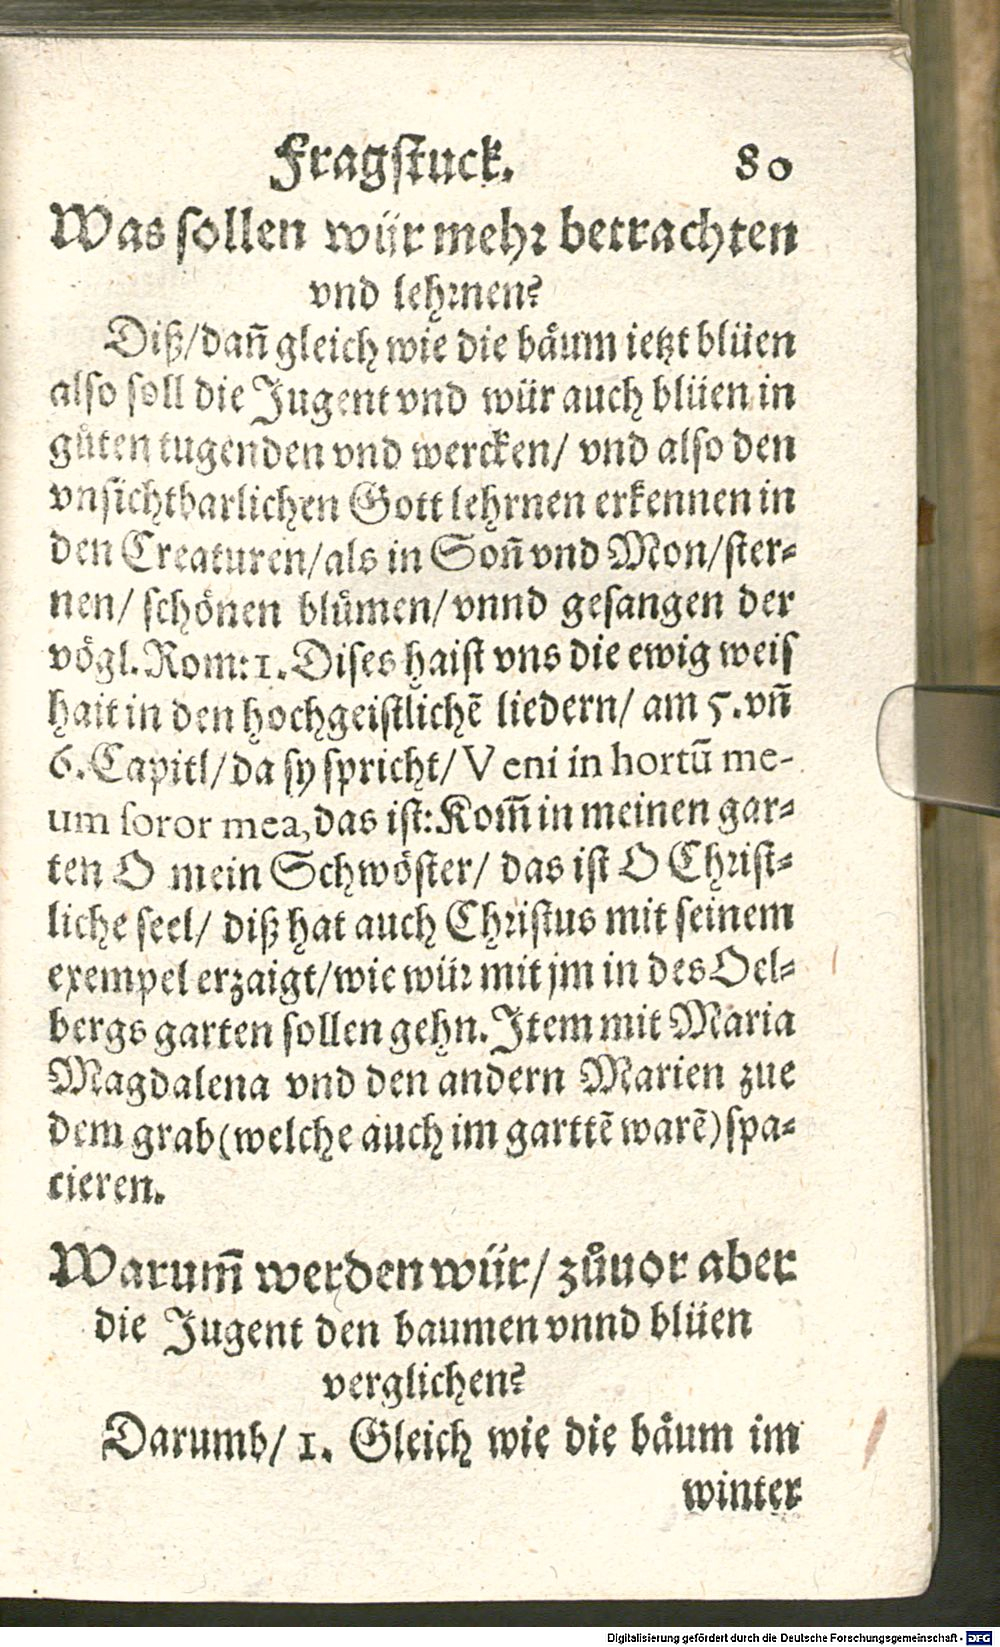 Fragstuck. 80
Was sollen wür mehr betrachten
vnd lehrnen?
Diß/dañ gleich wie die bäum ietzt blüen
also soll die Jugent vnd wür auch blüen in
gůten tugenden vnd wercken/ vnd also den
vnsichtbarlichen Gott lehrnen erkennen in
den Creaturen/als in Soñ vnd Mon/ster-
nen/ schönen blůmen/vnnd gesangen der
vögl. Rom: 1. Dises haist vns die ewig weis
hait in den hochgeistlichẽ liedern/ am 5. vñ
6. Capitl/da sy spricht/ Veni in hortũ me-
um soror mea, das ist: Kom̃ in meinen gar-
ten O mein Schwöster/ das ist O Christ-
liche seel/ diß hat auch Christus mit seinem
exempel erzaigt/wie wür mit jm in des Oel-
bergs garten sollen gehn. Item mit Maria
Magdalena vnd den andern Marien zue
dem grab (welche auch im garttẽ warẽ) spa-
cieren.
Warum̃ werden wür/ zůuor aber
die Jugent den baumen vnnd blüen
verglichen?
Darumb/ 1. Gleich wie die bäum im
winter
Digitalisierung gefördert durch die Deutsche Forschungsgemeinschaft - DFG